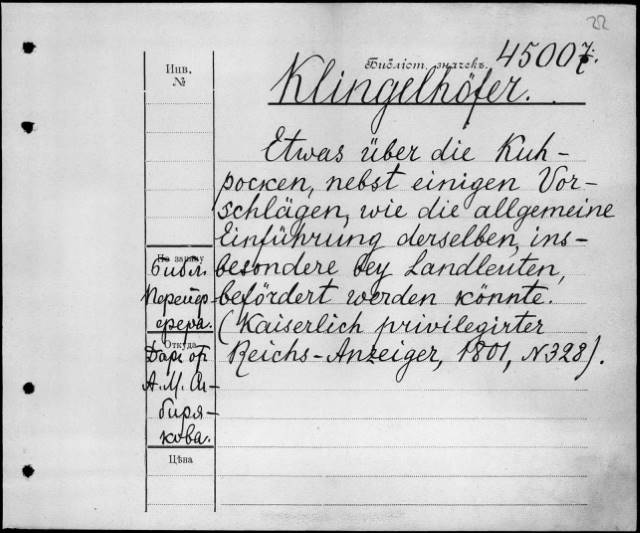 22
Библіот. значекъ. 45007.
Инв.
№
Klingelhöfer.
Etwas über die Kuh-
pocken, nebst einigen Vor-
schlägen, wie die allgemeine
Einführung derselben, ins-
besondere bey Landleuten,
befördert werden könnte.
(Kaiserlich privilegirter
Reichs-Anzeiger, 1801, N 328).
По запису
Библ.
Перетф-
фера.
Откуда
Даръ от
А. М. Си-
биря-
кова.
Цѣна